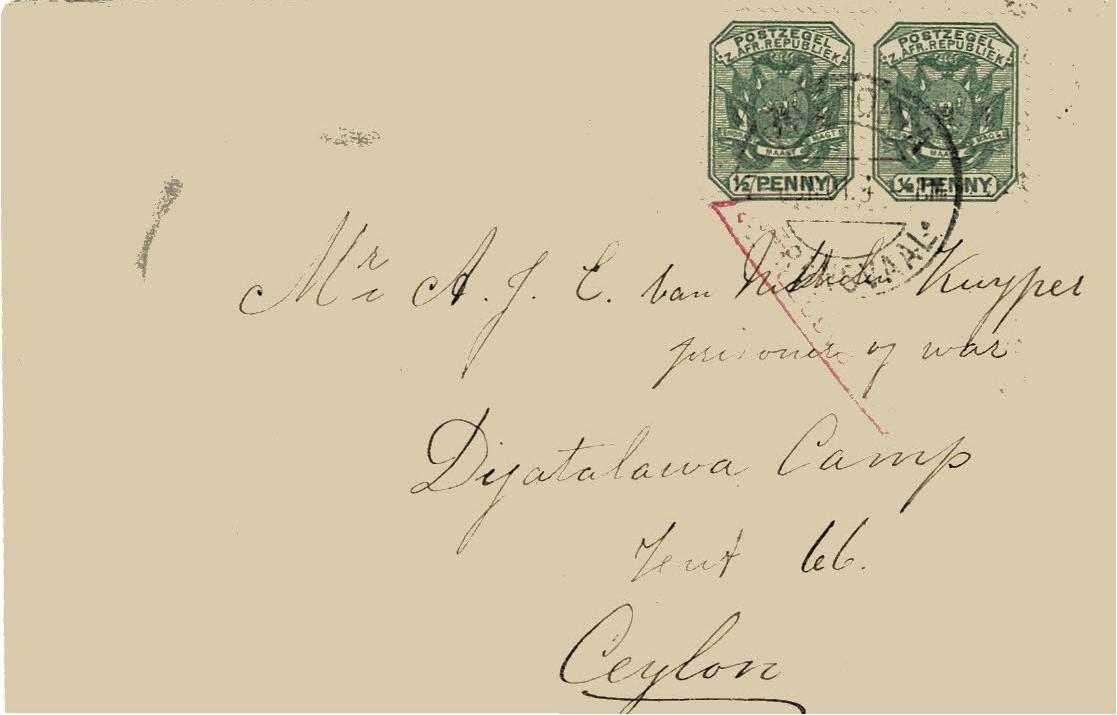 POSTZEGEL
Z. AFR. REPUBLIEK
MAAKT MAGT
½ PENNY
POSTZEGEL
Z. AFR. REPUBLIEK
MAAKT MAGT
½ PENNY
Mr A. J. E. van Kuyper
prisoner of war
Dijatalawa Camp
Tent 66.
Ceylon